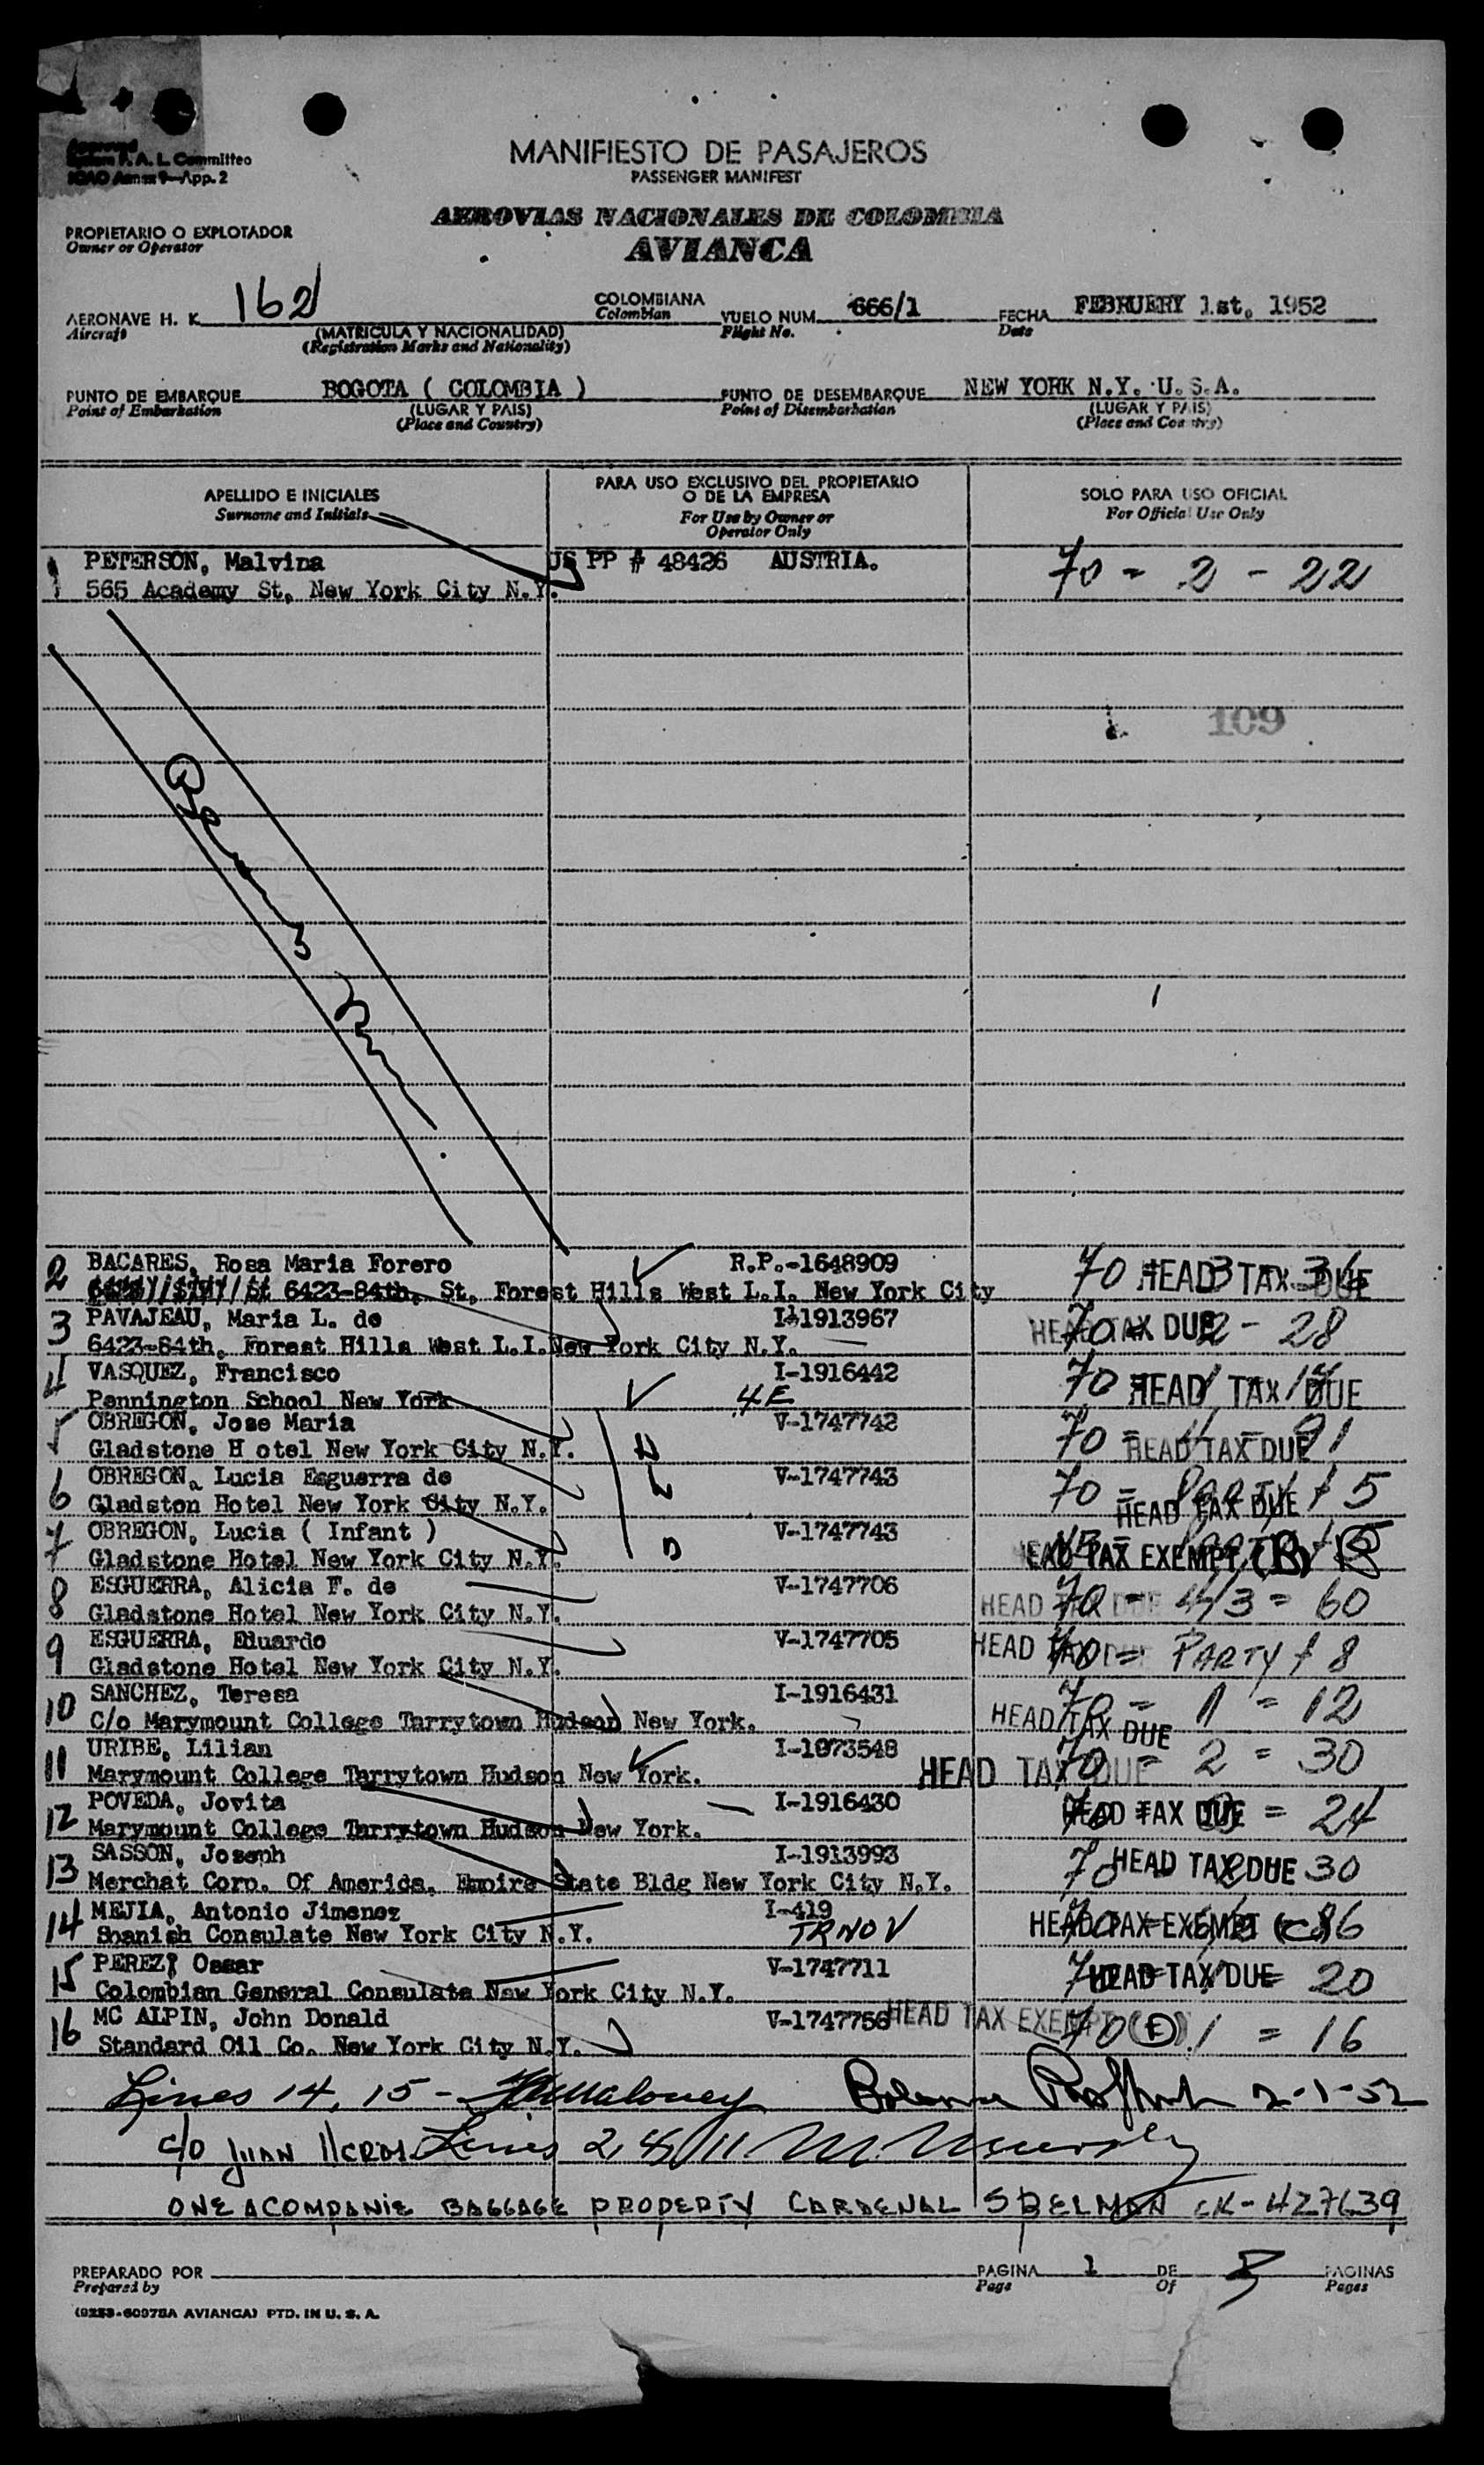 Approved
F. A. L. Committee
ICAO Annex 9—App. 2
MANIFIESTO DE PASAJEROS
PASSENGER MANIFEST
AEROVIAS NACIONALES DE COLOMBIA
AVIANCA
PROPIETARIO O EXPLOTADOR
Owner or Operator
AERONAVE H. K. 162 COLOMBIANA VUELO NUM. 666/1 FECHA FEBRUERY 1st, 1952
Aircraft Colombian Flight No. Date
(MATRICULA Y NACIONALIDAD)
(Registration Marks and Nationality)
PUNTO DE EMBARQUE BOGOTA ( COLOMBIA ) PUNTO DE DESEMBARQUE NEW YORK N.Y. U.S.A.
Point of Embarkation (LUGAR Y PAIS) Point of Disembarkation (LUGAR Y PAIS)
(Place and Country) (Place and Country)
APELLIDO E INICIALES PARA USO EXCLUSIVO DEL PROPIETARIO O DE LA EMPRESA SOLO PARA USO OFICIAL
Surname and Initials For Use by Owner or Operator Only For Official Use Only
1 PETERSON, Malvina US PP # 48426 AUSTRIA. 70 - 2 - 22
565 Academy St, New York City N.Y.
109
2 BACARES, Rosa Maria Forero R.P.-1648909 70 HEAD TAX DUE
6423-84th, St, Forest Hills West L.I. New York City
3 PAVAJEAU, Maria L. de I-1913967 70 HEAD TAX DUE - 28
6423-84th, Forest Hills West L.I. New York City N.Y.
4 VASQUEZ, Francisco I-1916442 70 HEAD TAX DUE
Pennington School New York 4E
5 OBREGON, Jose Maria V-1747742 70 HEAD TAX DUE
Gladstone H otel New York City N.Y.
6 OBREGON, Lucia Esguerra de V-1747743 70 = PARTY / 5 HEAD TAX DUE
Gladston Hotel New York City N.Y.
7 OBREGON, Lucia ( Infant ) V-1747743 HEAD TAX EXEMPT (B)
Gladstone Hotel New York City N.Y.
8 ESGUERRA, Alicia F. de V-1747706 HEAD TAX DUE 70 = 43 = 60
Gladstone Hotel New York City N.Y.
9 ESGUERRA, Eduardo V-1747705 HEAD TAX DUE 70 = PARTY / 8
Gladstone Hotel New York City N.Y.
10 SANCHEZ, Teresa I-1916431 HEAD TAX DUE 70 = 1 = 12
C/o Marymount College Tarrytown Hudson New York.
11 URIBE, Lilian I-1073548 HEAD TAX DUE 70 = 2 = 30
Marymount College Tarrytown Hudson New York.
12 POVEDA, Jovita I-1916430 HEAD TAX DUE = 24
Marymount College Tarrytown Hudson New York.
13 SASSON, Joseph I-1913993 70 HEAD TAX DUE 30
Merchat Corp. Of Amerida, Empire State Bldg New York City N.Y.
14 MEJIA, Antonio Jimenez I-419 HEAD TAX EXEMPT (C) 86
Spanish Consulate New York City N.Y. TRNOV
15 PEREZ, Oscar V-1747711 70 HEAD TAX DUE = 20
Colombian General Consulate New York City N.Y.
16 MC ALPIN, John Donald V-1747756 HEAD TAX EXEMPT (E) 70 1 = 16
Standard Oil Co. New York City N.Y.
Lines 14, 15 - Maloney 2-1-52
c/o JUAN Lines 2, 4, 11
ONE ACOMPANIE BAGGAGE PROPERTY CARDENAL SPELMAN CK-427639
PREPARADO POR PAGINA 1 DE PAGINAS
Prepared by Page Of Pages
(0253-60975A AVIANCA) PTD. IN U. S. A.